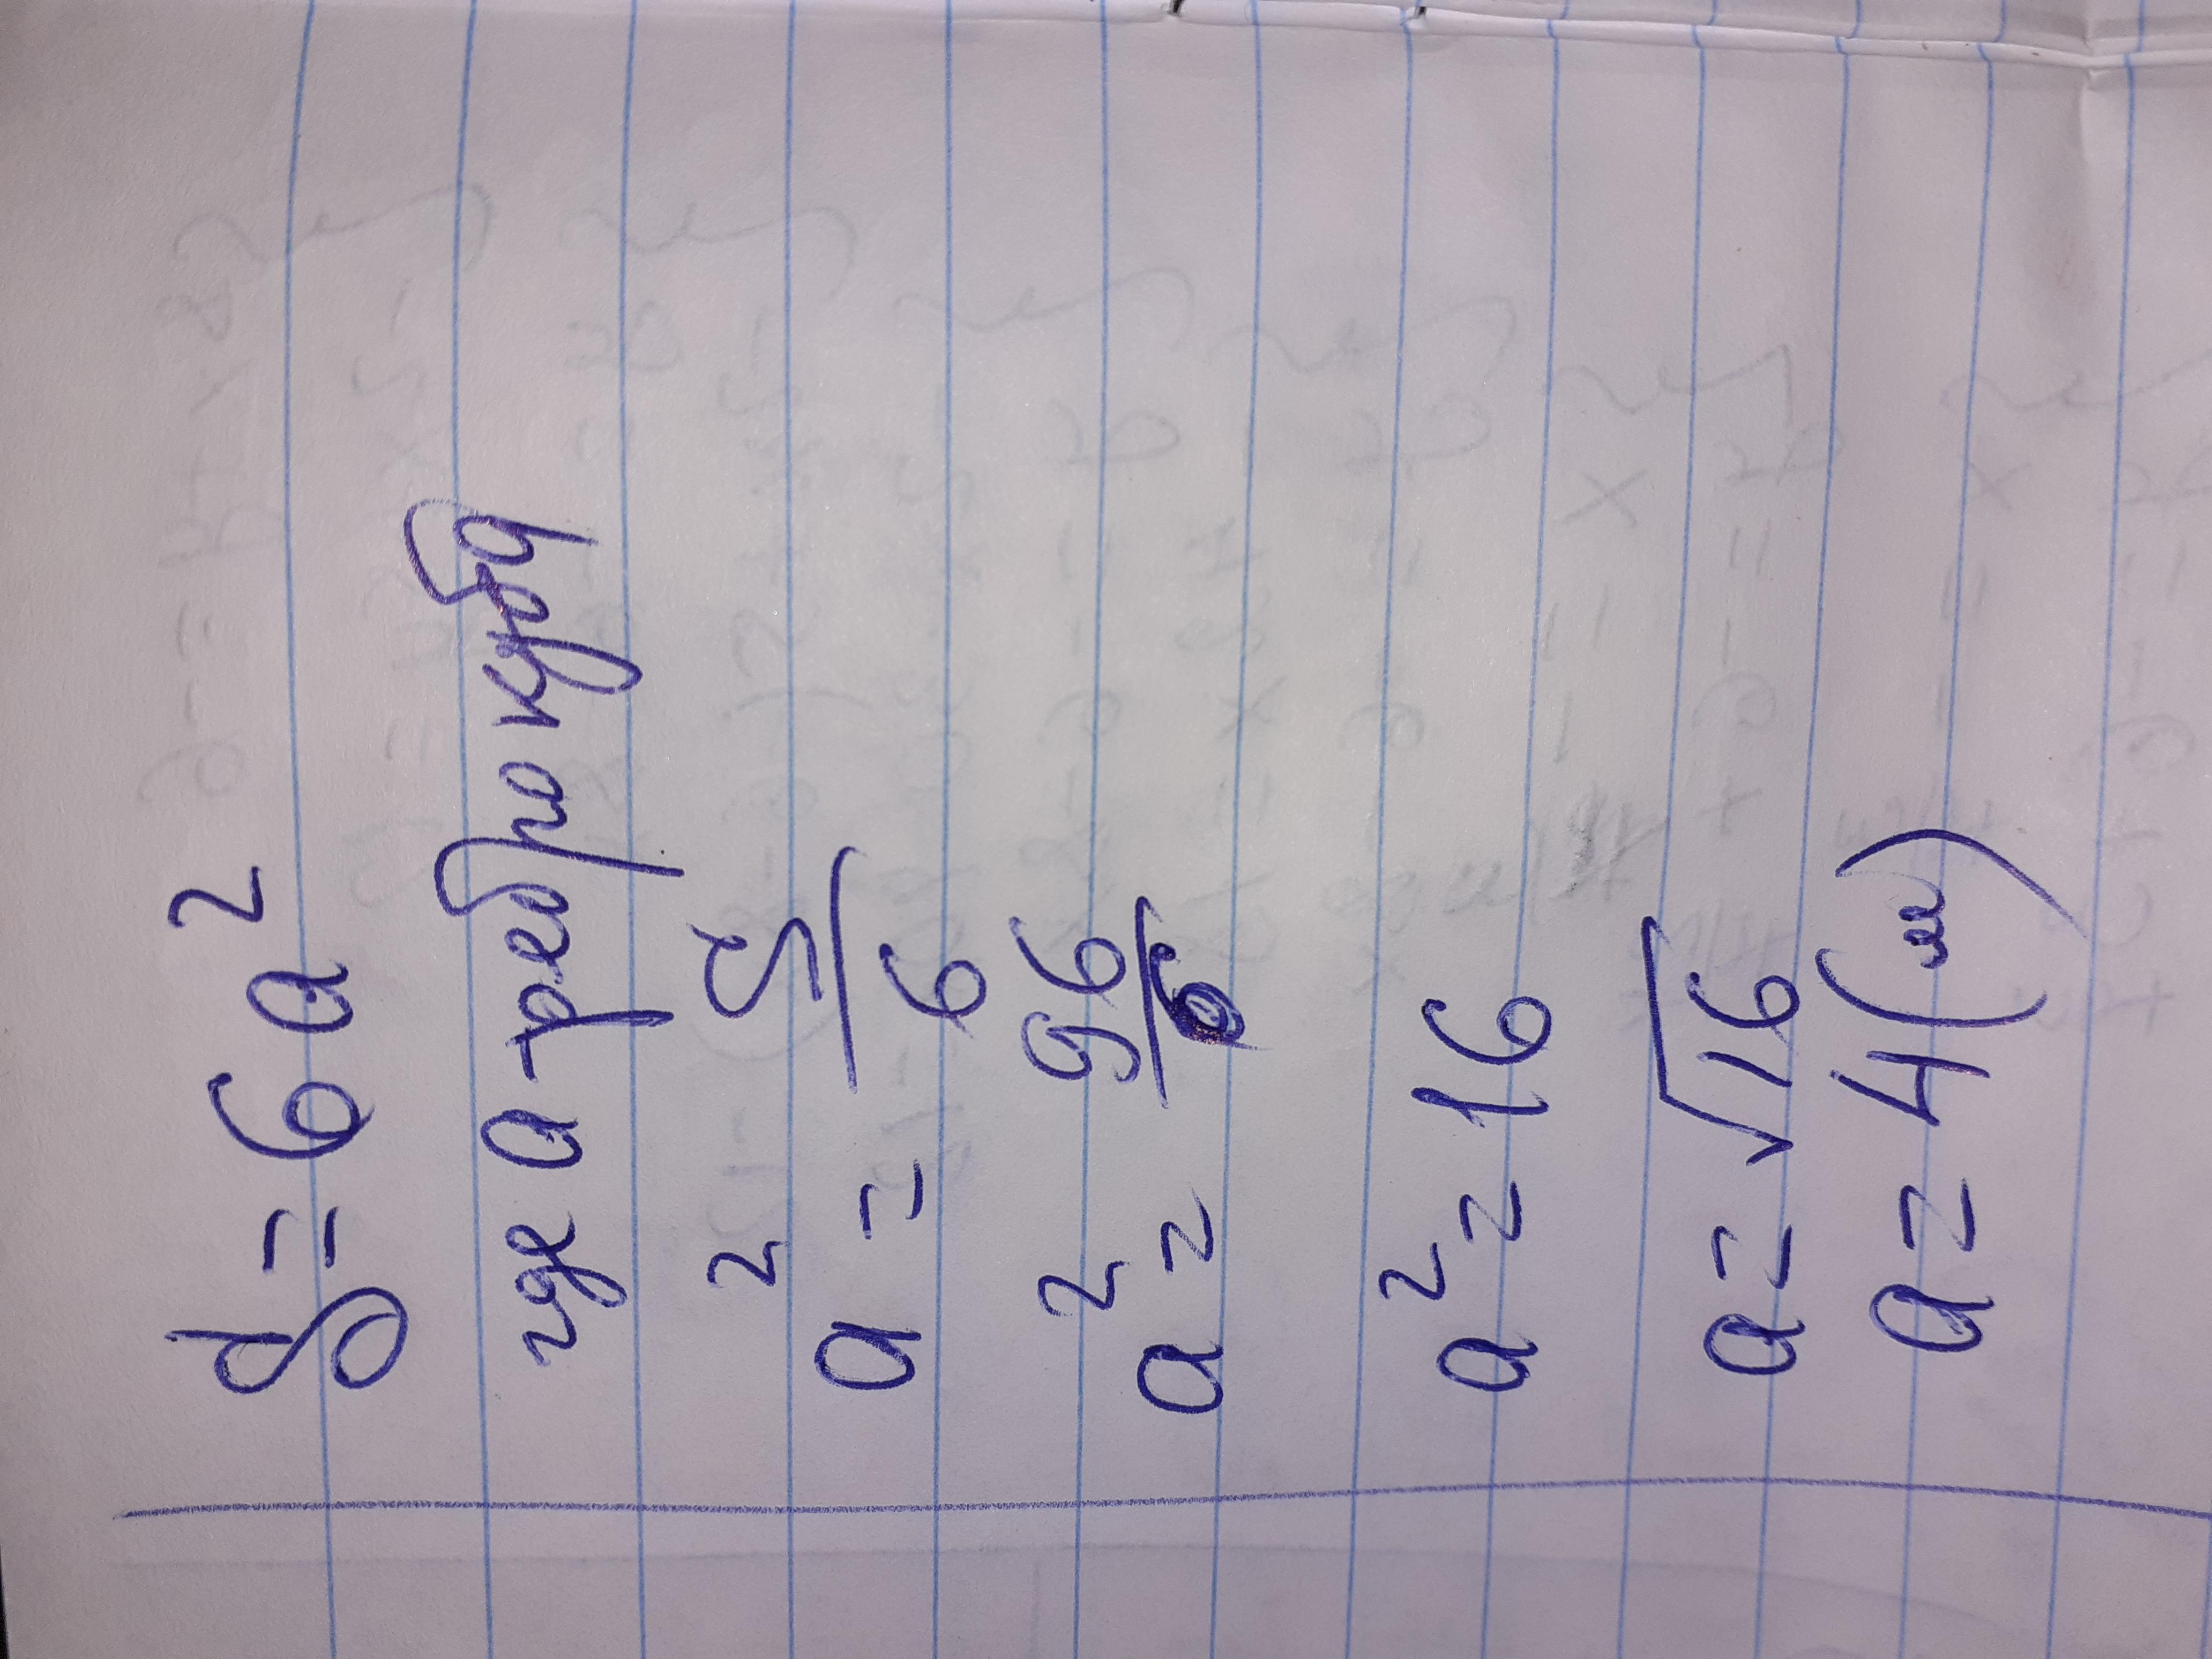 S = 6a²
где a - ребро куба
a² = S/6
a² = 96/6
a² = 16
a = √16
a = 4 (см)